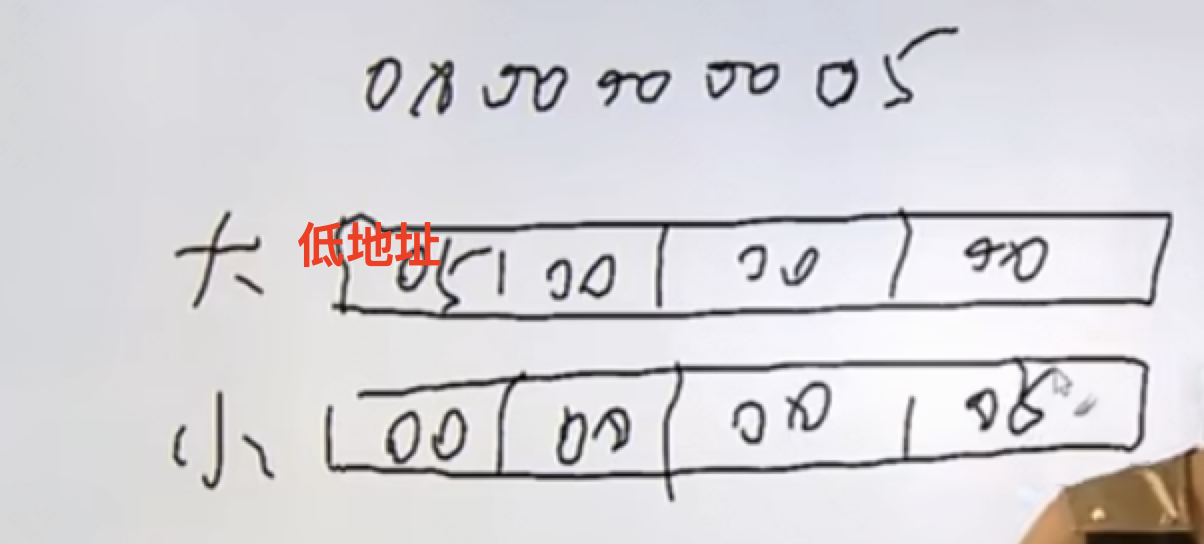 0x00 00 00 05
大 低地址 05 00 00 00
小 00 00 00 05